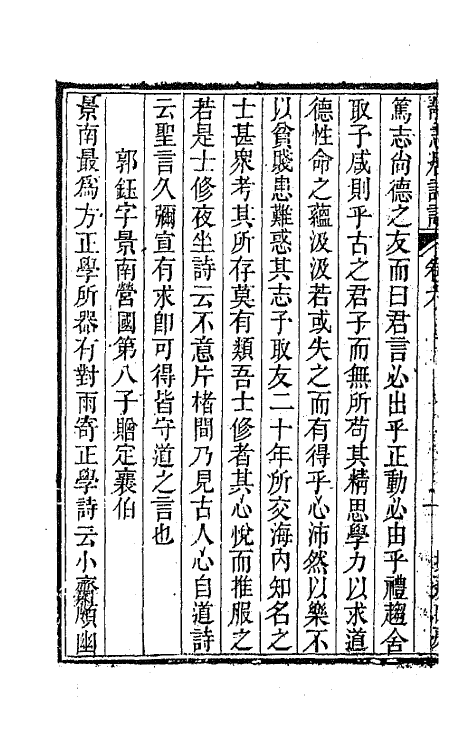 靜志居詩話 卷六
篤志尙德之友而曰君言必出乎正動必由乎禮趨舍
取予咸則乎古之君子而無所苟其精思學力以求道
德性命之蘊汲汲若或失之而有得乎心沛然以樂不
以貧賤患難惑其志予取友二十年所交海內知名之
士甚衆考其所存莫有類吾士修者其心悅而推服之
若是士修夜坐詩云不意片楮間乃見古人心自道詩
云聖言久彌宣有求卽可得皆守道之言也
郭鈺字景南營國第八子贈定襄伯
景南最爲方正學所器有對雨寄正學詩云小齋頗幽